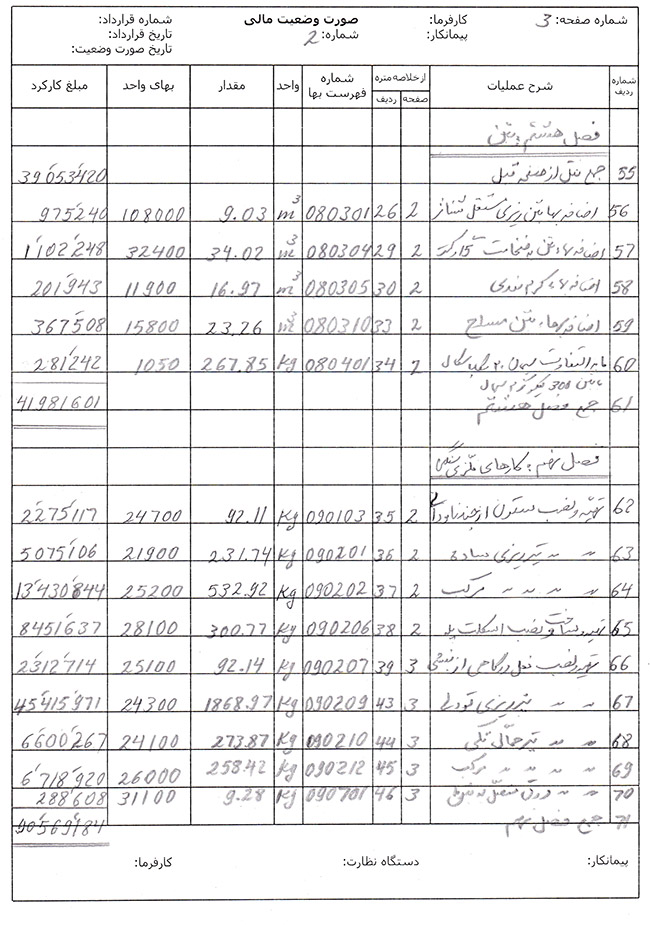 شماره صفحه: 3 کارفرما: صورت وضعیت مالی شماره قرارداد:
پیمانکار: شماره: 2 تاریخ قرارداد:
تاریخ صورت وضعیت:
شماره ردیف شرح عملیات از خلاصه متره صفحه ردیف شماره فهرست بها واحد مقدار بهای واحد مبلغ کارکرد
فصل هشتم: بتن
55 جمع نقل از صفحه قبل 39'053'420
56 اضافه بها بتن ریزی سقف 2 26 080301 m³ 9.03 108000 975'240
57 اضافه بها بتن به ضخامت 15 2 29 080304 m³ 34.02 32400 1'102'248
58 اضافه بها 2 30 080305 m³ 16.97 11900 201'943
59 اضافه بها، بتن مسلح 2 33 080310 m³ 23.26 15800 367'508
60 مابه التفاوت سیمان 2 34 080401 kg 267.85 1050 281'242
300
61 جمع فصل هشتم 41'981'601
فصل نهم: کارهای فلزی سنگین
62 تهیه و نصب ستون از 2 35 090103 kg 92.11 24700 2'275'117
63 〃 〃 تیرریزی ساده 2 36 090201 kg 231.74 21900 5'075'106
64 〃 〃 〃 〃 مرکب 2 37 090202 kg 532.92 25200 13'430'844
65 تهیه و ساخت و نصب اسکلت پله 2 38 090206 kg 300.77 28100 8'451'637
66 تهیه و نصب نعل درگاهی از نبشی 3 39 090207 kg 92.14 25100 2'312'714
67 〃 〃 تیرریزی 3 43 090209 kg 1868.97 24300 45'415'971
68 〃 〃 تیر حمال تکی 3 44 090210 kg 273.87 24100 6'600'267
69 〃 〃 〃 〃 مرکب 3 45 090212 kg 258.42 26000 6'718'920
70 〃 〃 ورق 3 46 090701 kg 9.28 31100 288'608
71 جمع فصل نهم 90'569'184
پیمانکار: دستگاه نظارت: کارفرما: